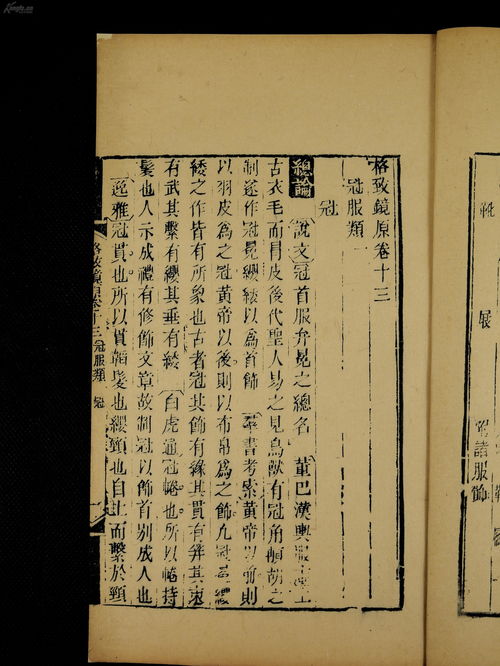 格致鏡原卷十三
冠服類
冠
總論 說文冠首服弁冕之總名 董巴漢輿服志上
古衣毛而冒皮後代聖人易之見鳥獸有冠角䫇胡之
制遂作冠冕纓緌以為首飾 羣書考索黃帝以前則
以羽皮為之冠黃帝以後則以布帛為之飾凡冠冕
緌之作皆有所象也古者冠其飾有緣其貫有笄其束
有武其繫有纓其垂有緌 白虎通冠幓也所以幓持
髮也人示成禮有修飾文章故制冠以飾首别成人也
逸雅冠貫也所以貫韜髮也纓頸也自上而繫於頸
格致鏡原卷十三 冠服類 冠
靴 屐 諸服飾
Kongfz.cn